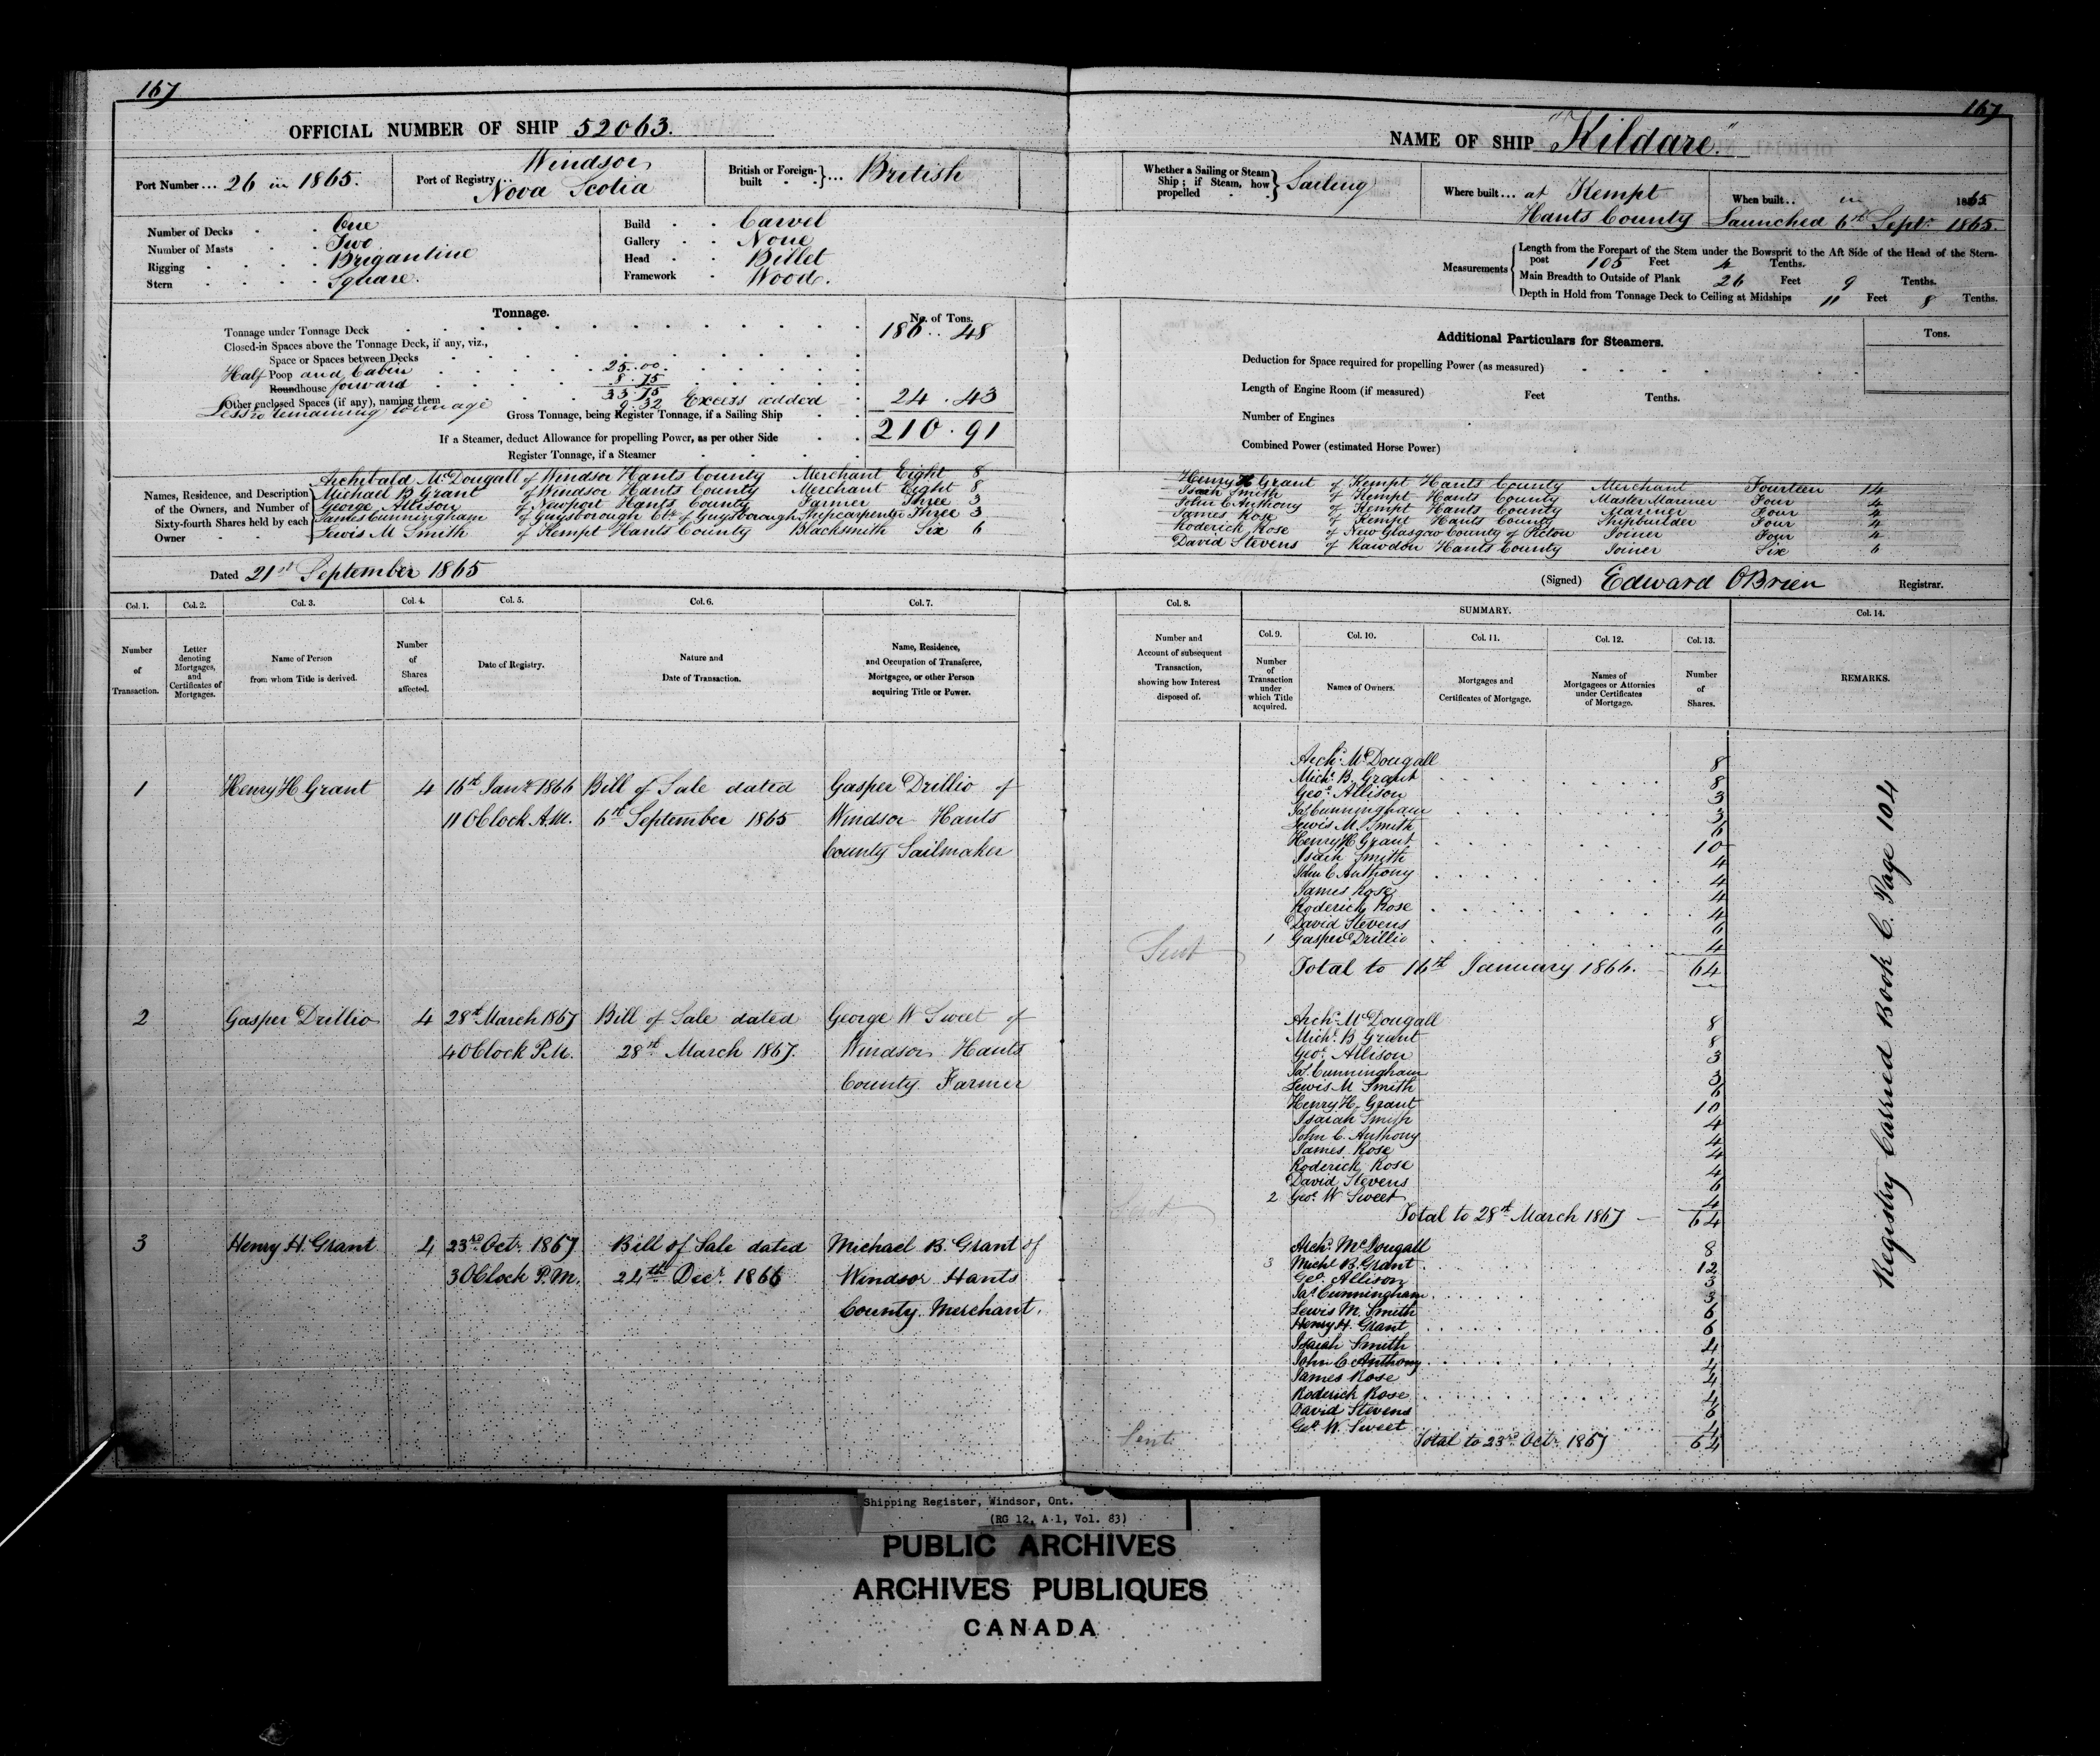 167
OFFICIAL NUMBER OF SHIP 52063.
Port Number... 26 in 1865.
Port of Registry.. Windsor
Nova Scotia
British or Foreign-built } ... British
Number of Decks One
Number of Masts Two
Rigging Brigantine
Stern Square.
Build Carvel
Gallery None
Head Billet
Framework Wood.
Tonnage.
No. of Tons.
Tonnage under Tonnage Deck 186.. 48
Closed-in Spaces above the Tonnage Deck, if any, viz.,
Space or Spaces between Decks
Half Poop and Cabin 25..00
Roundhouse forward 8.75
Other enclosed Spaces (if any), naming them 33.75
Less remaining tonnage 9.32 Excess added 24.43
Gross Tonnage, being Register Tonnage, if a Sailing Ship
210.91
If a Steamer, deduct Allowance for propelling Power, as per other Side
Register Tonnage, if a Steamer
Names, Residence, and Description of the Owners, and Number of Sixty-fourth Shares held by each Owner
Archibald McDougall of Windsor Hants County Merchant Eight 8
Michael B Grant of Windsor Hants County Merchant Eight 8
George Allison of Newport Hants County Farmer Three 3
James Cunningham of Guysborough Cty of Guysborough Shipcarpenter Three 3
Lewis M Smith of Kempt Hants County Blacksmith Six 6
Dated 21st September 1865
Col. 1. Col. 2. Col. 3. Col. 4. Col. 5. Col. 6. Col. 7.
Number of Transaction.
Letter denoting Mortgages, and Certificates of Mortgages.
Name of Person from whom Title is derived.
Number of Shares affected.
Date of Registry.
Nature and Date of Transaction.
Name, Residence, and Occupation of Transferee, Mortgagee, or other Person acquiring Title or Power.
1 Henry H Grant 4 16th Jany 1866 Bill of Sale dated Gasper Drillio of
11 OClock A.M. 6th September 1865 Windsor Hants
County Sailmaker
2 Gasper Drillio 4 28th March 1867 Bill of Sale dated George W Sweet of
4 OClock P.M. 28th March 1867. Windsor Hants
County Farmer
3 Henry H. Grant 4 23rd Octr 1867 Bill of Sale dated Michael B. Grant of
3 OClock P.M. 24th Decr 1866 Windsor Hants
County Merchant.
167
NAME OF SHIP "Kildare"
Whether a Sailing or Steam Ship; if Steam, how propelled } Sailing
Where built... at Kempt
Hants County
When built.. in 1865
Launched 6th Septr 1865.
Measurements
Length from the Forepart of the Stem under the Bowsprit to the Aft Side of the Head of the Stern-
post 105 Feet 4 Tenths.
Main Breadth to Outside of Plank 26 Feet 9 Tenths.
Depth in Hold from Tonnage Deck to Ceiling at Midships 11 Feet 8 Tenths.
Additional Particulars for Steamers.
Tons.
Deduction for Space required for propelling Power (as measured)
Length of Engine Room (if measured) Feet Tenths.
Number of Engines
Combined Power (estimated Horse Power)
Henry H Grant of Kempt Hants County Merchant Fourteen 14
Isaiah Smith of Kempt Hants County Master Mariner Four 4
John C Anthony of Kempt Hants County Mariner Four 4
James Rose of Kempt Hants County Shipbuilder Four 4
Roderick Rose of New Glasgow County of Pictou Joiner Four 4
David Stevens of Rawdon Hants County Joiner Six 6
(Signed) Edward OBrien Registrar.
Col. 8. SUMMARY. Col. 14.
Col. 9. Col. 10. Col. 11. Col. 12. Col. 13.
Number and Account of subsequent Transaction, showing how Interest disposed of.
Number of Transaction under which Title acquired.
Names of Owners.
Mortgages and Certificates of Mortgage.
Names of Mortgagees or Attornies under Certificates of Mortgage.
Number of Shares.
REMARKS.
Archd McDougall 8
Michl B. Grant 8
Geoe Allison 3
Jas Cunningham 3
Lewis M. Smith 6
Henry H Grant 10
Isaiah Smith 4
John C Anthony 4
James Rose 4
Roderick Rose 4
David Stevens 6
1 Gasper Drillio 4
Sent
Total to 16th January 1866. 64
Archd McDougall 8
Michl B Grant 8
Geoe Allison 3
Jas Cunningham 3
Lewis M Smith 6
Henry H. Grant 10
Isaiah Smith 4
John C. Anthony 4
James Rose 4
Roderick Rose 4
David Stevens 6
2 Geoe W Sweet 4
Sent
Total to 28th March 1867 64
Archd McDougall 8
3 Michl B. Grant 12
Geo Allison 3
Jas Cunningham 3
Lewis M. Smith 6
Henry H. Grant 6
Isaiah Smith 4
John C Anthony 4
James Rose 4
Roderick Rose 4
David Stevens 6
Geo W. Sweet 4
Sent
Total to 23rd Octr 1867 64
Registry Carried Book C. Page 104
Shipping Register, Windsor, Ont.
(RG 12, A-1, Vol. 83)
PUBLIC ARCHIVES
ARCHIVES PUBLIQUES
CANADA